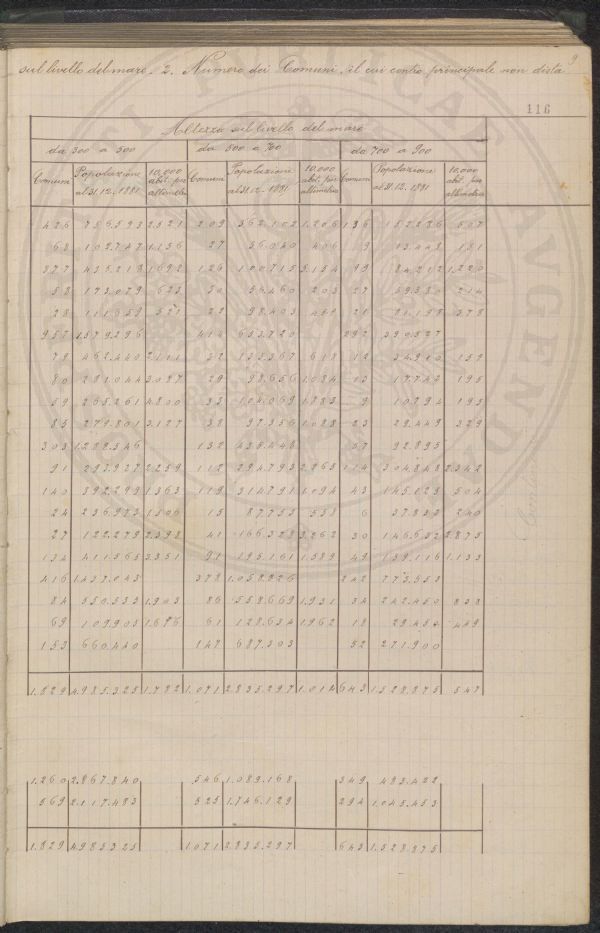 sul livello del mare. 2. Numero dei Comuni, il cui centro principale non dista
9
116
Altezza sul livello del mare
da 300 a 500 da 500 a 700 da 700 a 900
Comuni Popolazione al 31.12.1881 10.000 abit. per altimetria Comuni Popolazione al 31.12.1881 10.000 abit. per altimetria Comuni Popolazione al 31.12.1881 10.000 abit. per altimetria
426 756.593 2.521 209 362.102 1.206 136 152.226 507
68 102.747 1.156 27 36.040 406 9 13.448 151
377 435.218 1.692 126 100.715 3.154 99 84.212 1.220
58 173.079 623 30 56.460 203 27 59.530 214
28 111.659 521 22 98.403 461 21 81.158 378
957 1.579.296 414 653.720 292 390.527
79 462.440 2.111 32 135.367 618 12 34.910 159
80 281.044 3.087 29 98.656 1.084 13 17.742 195
59 265.261 4.800 33 104.069 1.883 9 10.794 195
85 279.801 3.127 38 97.356 1.088 23 29.449 329
303 1.288.546 132 435.448 57 92.895
91 293.927 2.259 112 294.793 2.265 114 304.848 2.342
140 392.299 1.363 119 314.791 1.094 43 145.123 504
24 236.973 1.506 15 87.753 558 6 37.833 240
27 122.279 2.398 41 166.328 3.262 30 146.632 2.875
134 411.565 3.351 91 195.161 1.589 49 139.116 1.133
416 1.457.043 378 1.058.826 242 773.553
84 550.535 1.903 86 558.669 1.931 34 242.450 838
69 109.905 1.676 61 128.634 1.962 18 29.454 449
153 660.440 147 687.303 52 271.900
1.829 4.985.325 1.722 1.071 2.835.297 1.014 643 1.528.875 547
1.260 2.867.840 546 1.089.168 349 483.422
569 2.117.483 525 1.746.129 294 1.045.453
1.829 4.985.325 1.071 2.835.297 643 1.528.875